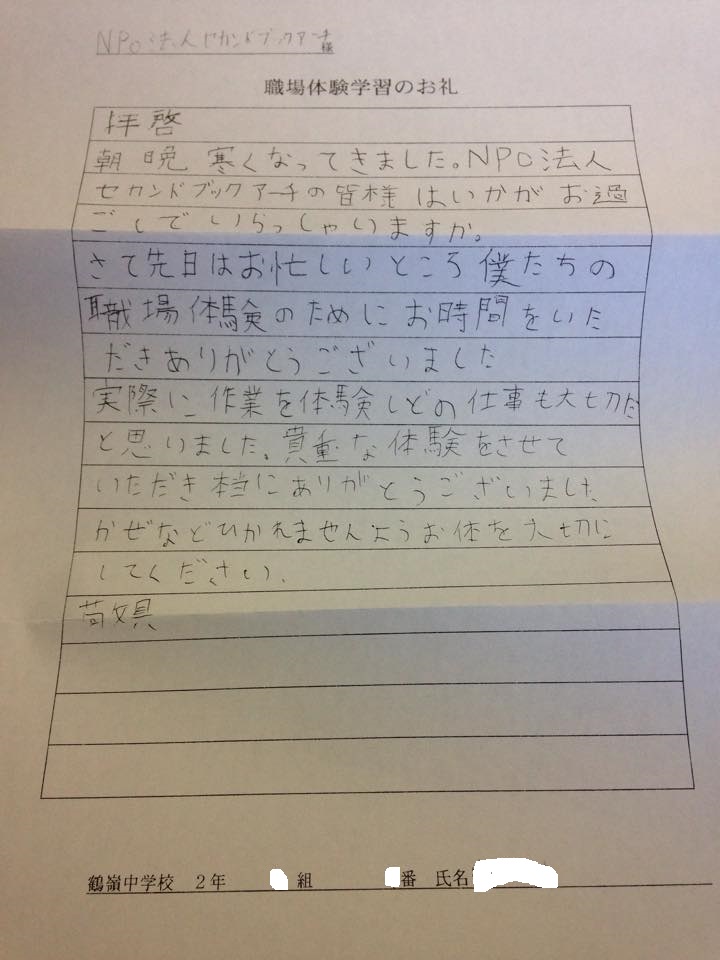 NPO法人セカンドブックアーチ
様
職場体験学習のお礼
拝啓
朝晩寒くなってきました。NPO法人
セカンドブックアーチの皆様はいかがお過
ごしでいらっしゃいますか。
さて先日はお忙しいところ僕たちの
職場体験のためにお時間をいた
だきありがとうございました
実際に作業を体験しどの仕事も大切だ
と思いました。貴重な体験をさせて
いただき本当にありがとうございました
かぜなどひかれませんようお体を大切に
してください。
敬具
鶴嶺中学校 2年 組 番 氏名